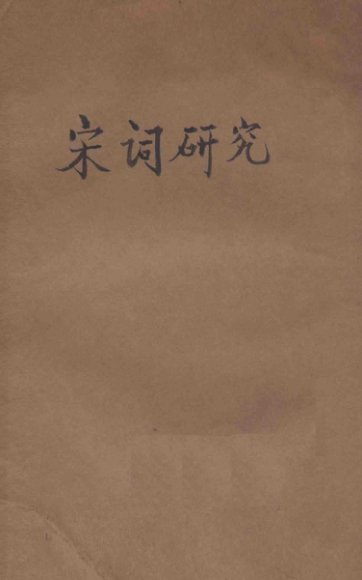 宋词研究